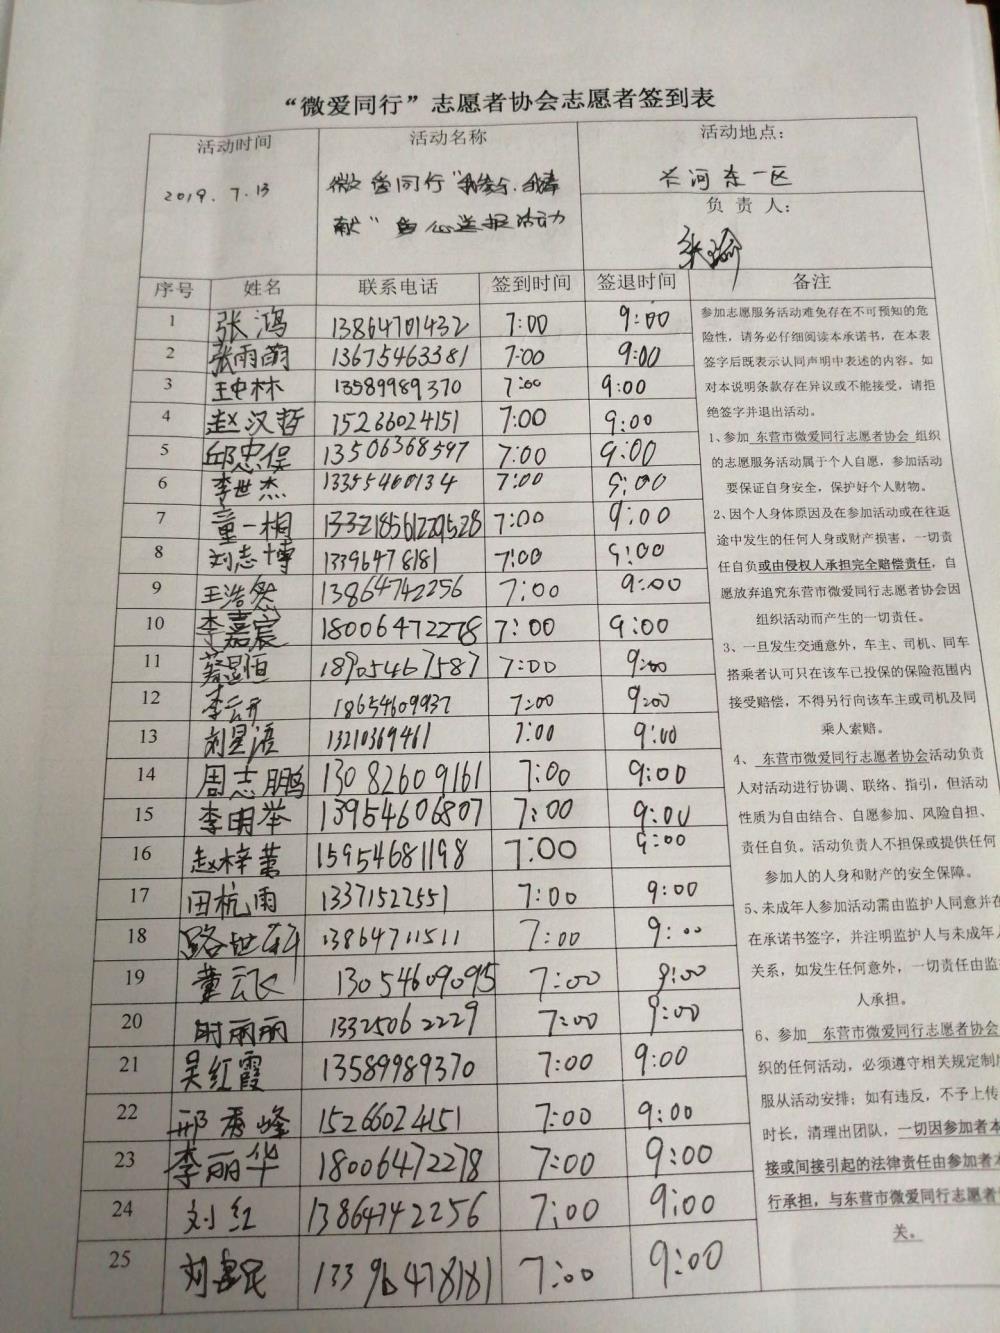 “微爱同行”志愿者协会志愿者签到表
活动时间 活动名称 活动地点：
2019. 7.13 微爱同行“我参与.我奉 长河东一区
献” 送报活动 负 责 人：
张
序号 姓名 联系电话 签到时间 签退时间 备注
1 张鸿 13864701432 7:00 9:00
2 张雨萌 13675463381 7:00 9:00
3 王中林 13589989370 7:00 9:00
4 赵汉哲 15266024151 7:00 9:00
5 邱忠保 13506368597 7:00 9:00
6 李世杰 13355460134 7:00 9:00
7 童一桐 7:00 9:00
8 刘志博 13396478181 7:00 9:00
9 王浩然 13864742256 7:00 9:00
10 李嘉宸 18006472278 7:00 9:00
11 蔡昱恒 18905467587 7:00 9:00
12 李云开 18654609937 7:00 9:00
13 刘星语 13210369461 7:00 9:00
14 周志鹏 13082609161 7:00 9:00
15 李明举 13954606807 7:00 9:00
16 赵梓萱 15954681198 7:00 9:00
17 田杭雨 13371522551 7:00 9:00
18 路世 13864711511 7:00 9:00
19 董云飞 13054609095 7:00 9:00
20 时丽丽 13325062229 7:00 9:00
21 吴红霞 13589989370 7:00 9:00
22 邢秀峰 15266024151 7:00 9:00
23 李丽华 18006472278 7:00 9:00
24 刘红 13864742256 7:00 9:00
25 刘 民 13396478181 7:00 9:00
参加志愿服务活动难免存在不可预知的危
险性，请务必仔细阅读本承诺书，在本表
签字后既表示认同声明中表述的内容。如
对本说明条款存在异议或不能接受，请拒
绝签字并退出活动。
1、参加 东营市微爱同行志愿者协会 组织
的志愿服务活动属于个人自愿，参加活动
要保证自身安全，保护好个人财物。
2、因个人身体原因及在参加活动或在往返
途中发生的任何人身或财产损害，一切责
任自负或由侵权人承担完全赔偿责任，自
愿放弃追究东营市微爱同行志愿者协会因
组织活动而产生的一切责任。
3、一旦发生交通意外，车主、司机、同车
搭乘者认可只在该车已投保的保险范围内
接受赔偿，不得另行向该车主或司机及同
乘人索赔。
4、 东营市微爱同行志愿者协会活动负责
人对活动进行协调、联络、指引，但活动
性质为自由结合、自愿参加、风险自担、
责任自负。活动负责人不担保或提供任何
参加人的人身和财产的安全保障。
5、未成年人参加活动需由监护人同意并在
在承诺书签字，并注明监护人与未成年人
关系，如发生任何意外，一切责任由监
人承担。
6、参加 东营市微爱同行志愿者协会
织的任何活动，必须遵守相关规定制
服从活动安排；如有违反，不予上传
时长，清理出团队，一切因参加者本
接或间接引起的法律责任由参加者本
行承担，与东营市微爱同行志愿者
关。